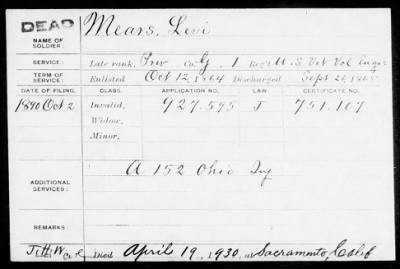 DEAD
NAME OF SOLDIER: Mears, Levi
SERVICE: Late rank, Priv Co. G, 1 Reg't U.S. Vet Vol Eng's
TERM OF SERVICE: Enlisted Oct 12, 1864 Discharged Sept 26, 1865
DATE OF FILING. CLASS. APPLICATION NO. LAW. CERTIFICATE NO.
1890 Oct 2 Invalid, 927.595 J 751.107
Widow,
Minor,
ADDITIONAL SERVICES: A 152 Ohio Inf
REMARKS:
Died April 19, 1930, at Sacramento, Calif